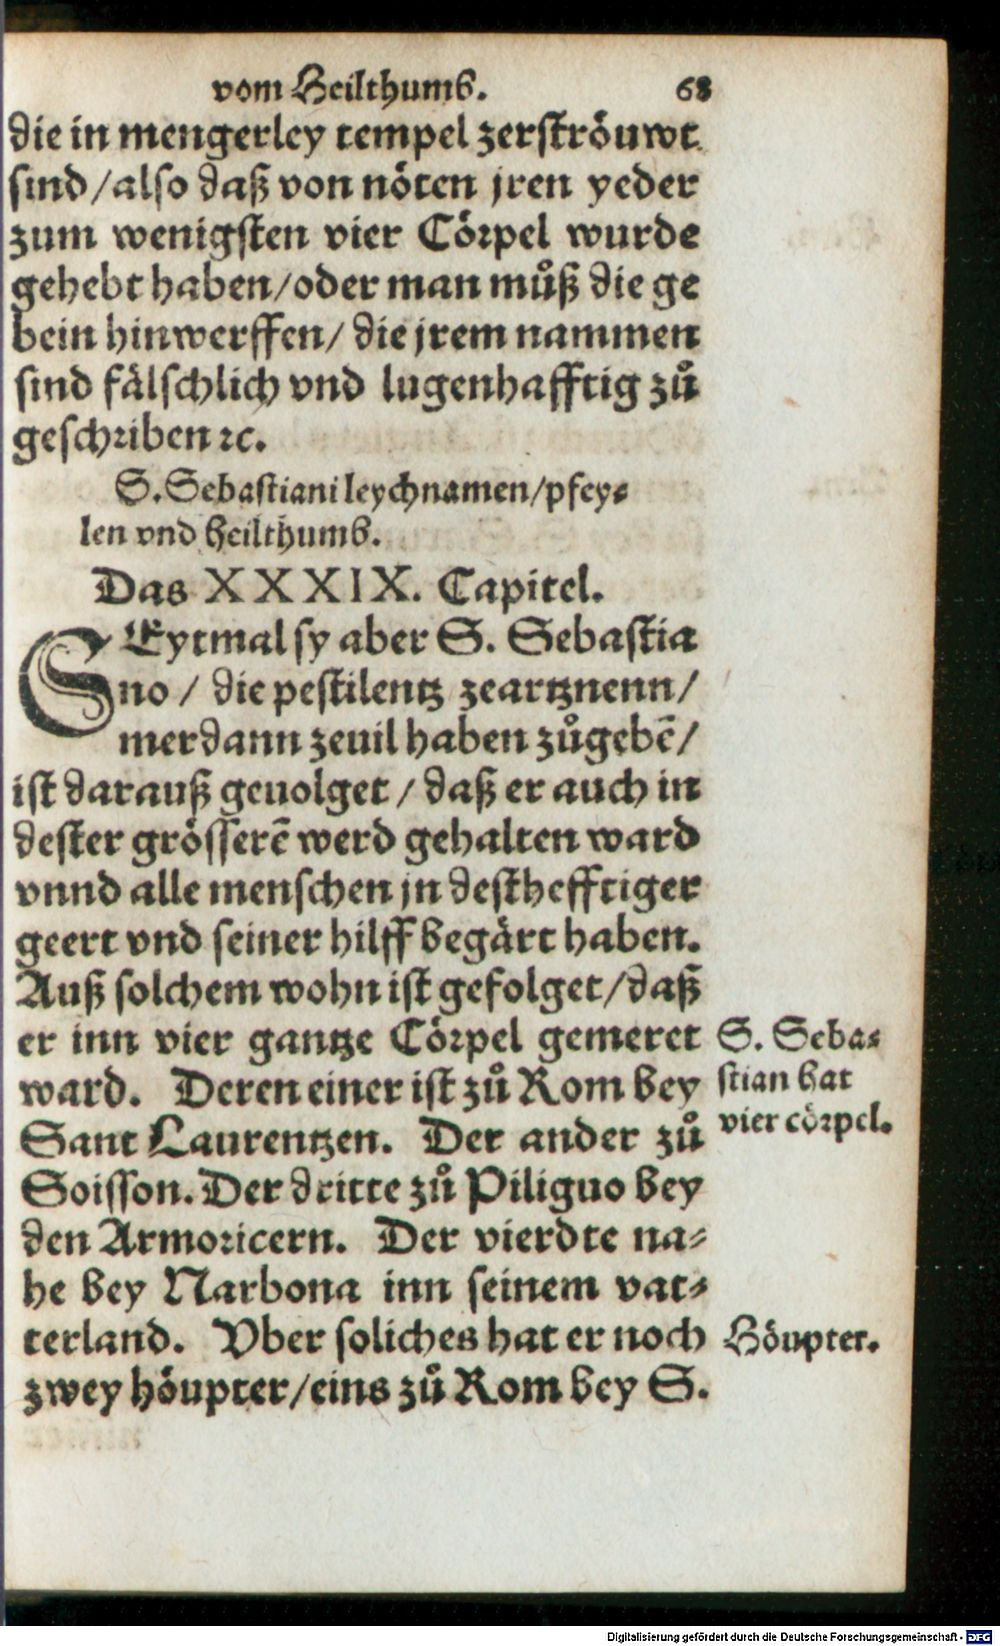 vom Heilthumb. 68
die in mengerley tempel zerströuwt
sind/also daß von nöten jren yeder
zum wenigsten vier Cörpel wurde
gehebt haben/oder man můß die ge
bein hinwerffen/ die jrem nammen
sind fälschlich vnd lugenhafftig zů
geschriben ꝛc.
S. Sebastiani leychnamen/pfey⸗
len vnd heilthumb.
Das XXXIX. Capitel.
SEytmal sy aber S. Sebastia
no / die pestilentz zeartznenn/
merdann zeuil haben zůgebē/
ist darauß geuolget / daß er auch in
dester grösserē werd gehalten ward
vnnd alle menschen jn desthefftiger
geert vnd seiner hilff begärt haben.
Auß solchem wohn ist gefolget/daß
er inn vier gantze Cörpel gemeret
ward. Deren einer ist zů Rom bey
Sant Laurentzen. Der ander zů
Soisson. Der dritte zů Piliguo bey
den Armoricern. Der vierdte na⸗
he bey Narbona inn seinem vat⸗
terland. Vber soliches hat er noch
zwey höupter/eins zů Rom bey S.
S. Seba⸗
stian hat
vier cörpel.
Höupter.
Digitalisierung gefördert durch die Deutsche Forschungsgemeinschaft - DFG